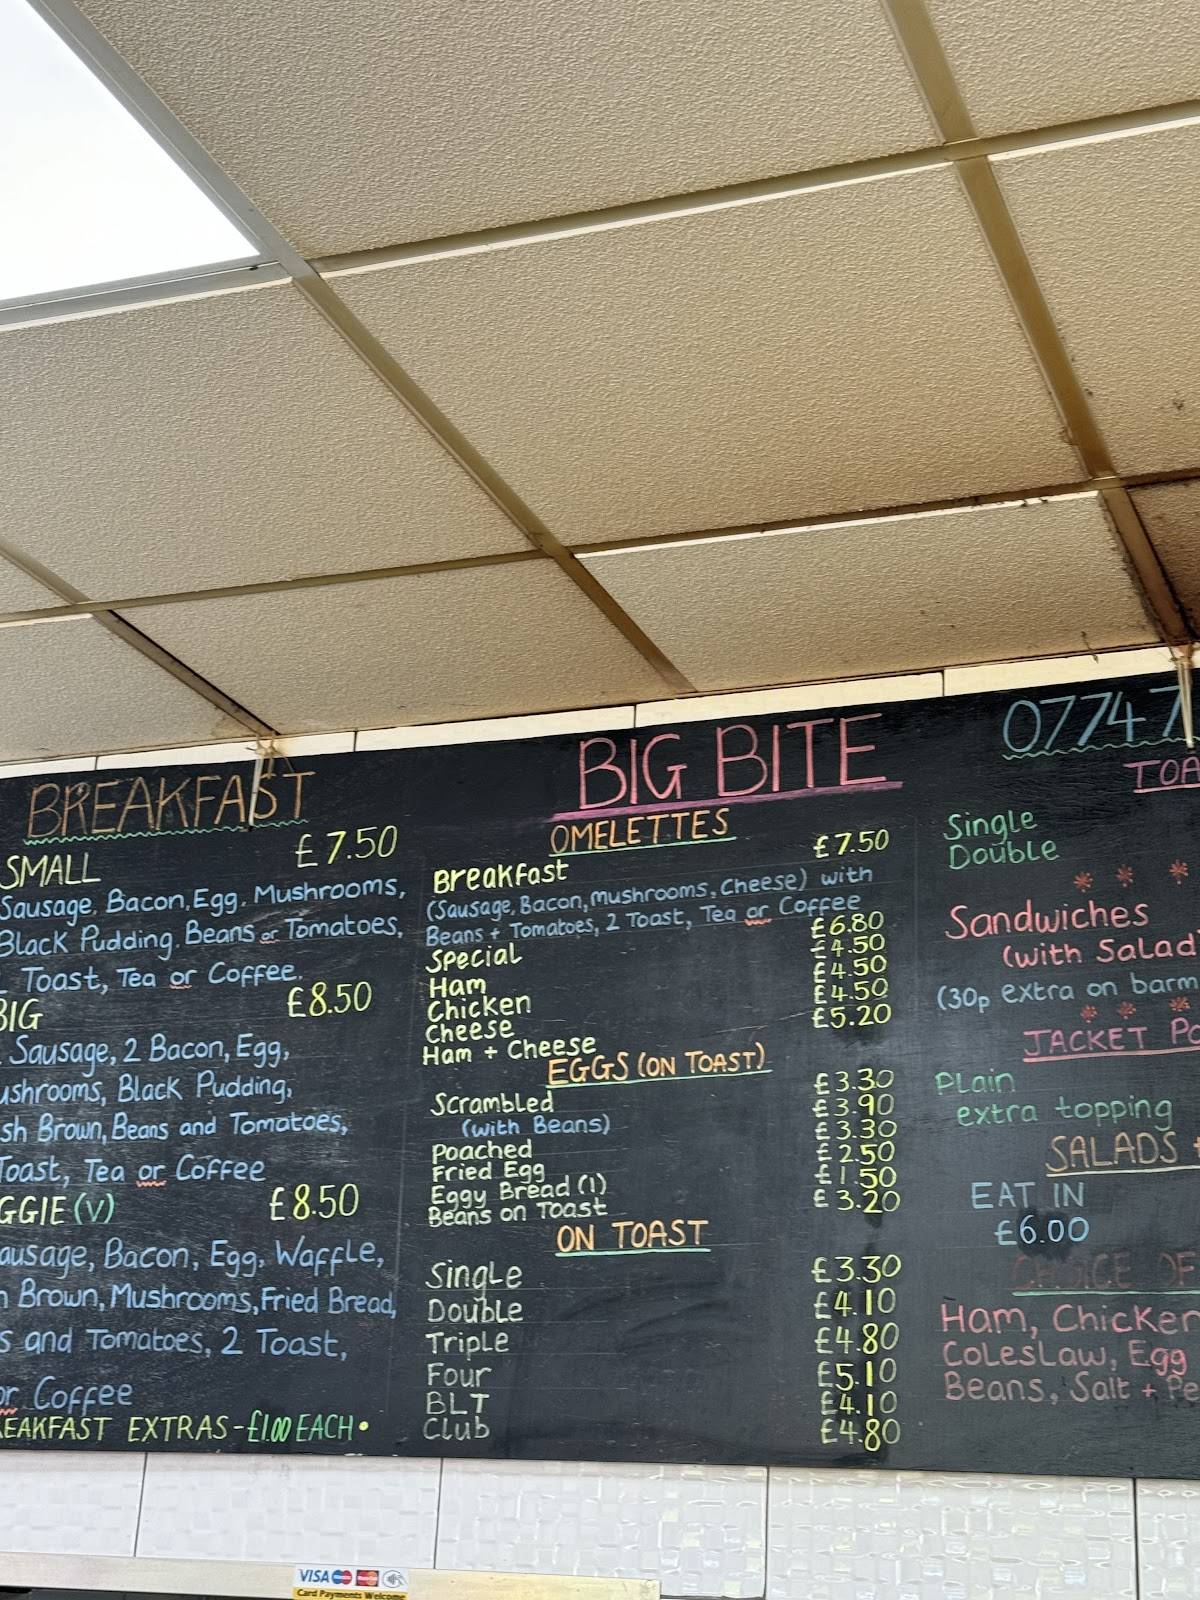 BREAKFAST
SMALL £7.50
Sausage, Bacon, Egg, Mushrooms,
Black Pudding, Beans or Tomatoes,
Toast, Tea or Coffee.
BIG £8.50
Sausage, 2 Bacon, Egg,
ushrooms, Black Pudding,
sh Brown, Beans and Tomatoes,
Toast, Tea or Coffee
GGIE (V) £8.50
ausage, Bacon, Egg, Waffle,
n Brown, Mushrooms, Fried Bread,
s and Tomatoes, 2 Toast,
or Coffee
EAKFAST EXTRAS - £1.00 EACH •
BIG BITE
OMELETTES
Breakfast £7.50
(Sausage, Bacon, mushrooms, Cheese) with
Beans + Tomatoes, 2 Toast, Tea or Coffee
Special £6.80
Ham £4.50
Chicken £4.50
Cheese £4.50
Ham + Cheese £5.20
EGGS (ON TOAST)
Scrambled £3.30
(with Beans) £3.90
Poached £3.30
Fried Egg £2.50
Eggy Bread (1) £1.50
Beans on Toast £3.20
ON TOAST
Single £3.30
Double £4.10
Triple £4.80
Four £5.10
BLT £4.10
Club £4.80
0774 7
TOA
Single
Double
Sandwiches
(with Salad)
(30p extra on barm
JACKET PO
Plain
extra topping
SALADS
EAT IN
£6.00
CHOICE OF
Ham, Chicken
Coleslaw, Egg
Beans, Salt + Pe
VISA
Card Payments Welcome